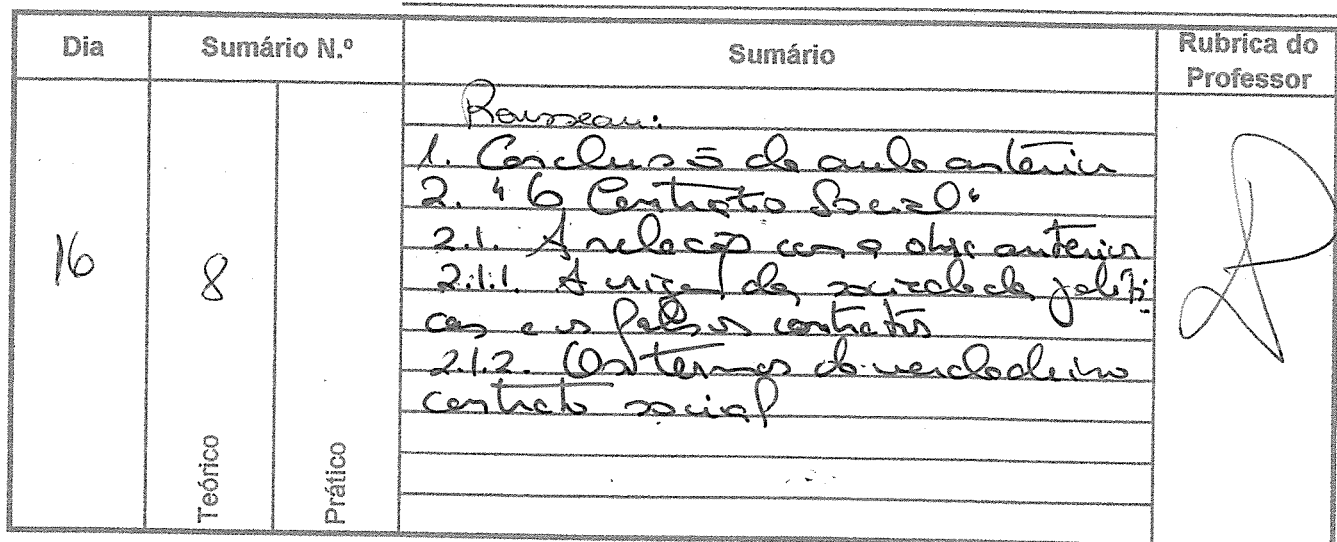 Dia Sumário N.º Sumário Rubrica do Professor
16 8
Rousseau:
1. Conclusão da aula anterior
2. "O Contrato Social"
2.1. A relação com a obra anterior
2.1.1. A origem das sociedades políti-
cas e os falsos contratos
2.1.2. Os termos do verdadeiro
contrato social
Teórico
Prático